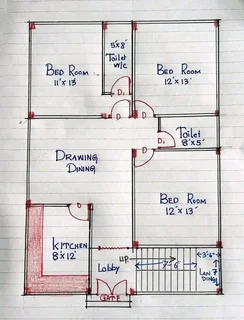 5'x8'
Toilet
W/c
BED ROOM
11'x 13'
BED ROOM
12'x13'
D1
D
D
D1
Toilet
8'x5'
DRAWING
DINING
D
BED ROOM
12'x13'
D
KITCHEN
8'x12'
Lobby
UP
7'-6"
3'-6"
LAN
DING
7'
GATE